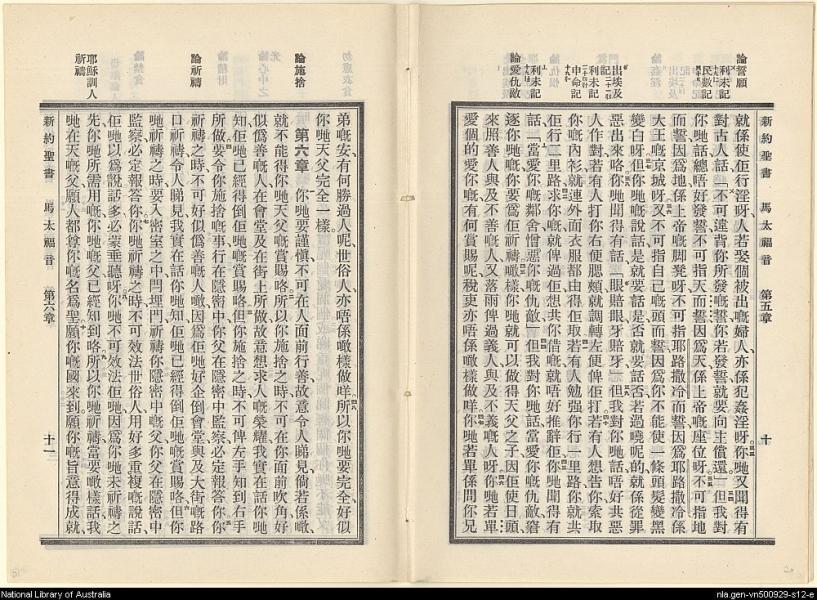 新約聖書 馬太福音 第五章 十
論誓願
利未記
民數記
出埃及記
利未記
申命記
利未記
論愛仇敵
就係使佢行淫呀人若娶個被出嘅婦人亦係犯姦淫呀你哋又聞得有
對古人話不可違背你所發嘅誓你若發誓就要向主償還但我對
你哋話總唔好發誓不可指天而誓因爲天係上帝嘅座位呀不可指地
而誓因爲地係上帝嘅脚凳呀不可指耶路撒冷而誓因爲耶路撒冷係
大王嘅京城呀又不可指自己嘅頭而誓因爲你不能使一條頭髮變黑
變白呀但你哋嘅說話是就要話是否就要話否若過嘵呢的就係從罪
惡出來咯你哋聞得有話眼賠眼牙賠牙但我對你哋話唔好共惡
人作對若有人打你右便腮頰就調轉左便俾佢打若有人想告你索取
你嘅內衫就連外面衣服都由得佢取若有人勉强你行一里路你就共
佢行二里路求你嘅就俾過佢想共你借嘅就唔好推辭佢你哋聞得有
話當愛你嘅鄰舍憎惡你嘅仇敵但我對你哋話當愛你嘅仇敵窘
逐你哋嘅你要爲佢祈禱噉樣你哋就可以做得天父之子因佢使日頭
來照善人與及不善嘅人又落雨俾過義人與及不義嘅人呀你哋若單
愛個的愛你嘅有何賞賜呢稅吏亦唔係噉樣做咩你哋若單係問你兄
新約聖書 馬太福音 第六章 十一
論施捨
論祈禱
耶穌訓人祈禱
弟嘅安有何勝過人呢世俗人亦唔係噉樣做咩所以你哋要完全好似
你哋天父完全一樣
第六章 你哋要謹愼不可在人面前行善故意令人睇見倘若係噉
就不能得你哋天父嘅賞賜咯所以你施捨之時不可在你面前吹角好
似僞善嘅人在會堂及在街上所做故意想求人嘅榮耀我實在話你哋
知佢哋已經得倒佢哋嘅賞賜咯但你施捨之時不可俾左手知到右手
所做要令你施捨嘅事行在隱密中你父在隱密中監察必定報答你你
祈禱之時不可好似僞善嘅人噉因爲佢哋好企倒會堂與及大街嘅路
口祈禱令人睇見我實在話你哋知佢哋已經得倒佢哋嘅賞賜咯但你
哋祈禱之時要入密室之中閂埋門祈禱你隱密中嘅父你父在隱密中
監察必定報答你你哋祈禱之時不可效法世俗人用好多重複嘅說話
佢哋以爲說話多必蒙垂聽呀你哋不可效法佢哋因爲你哋未祈禱之
先你哋所需用嘅你哋嘅父已經知到咯所以你哋祈禱當要噉樣話我
哋在天嘅父願人都尊你嘅名爲聖願你嘅國來到願你嘅旨意得成就
National Library of Australia
nla.gen-vn500929-s12-e